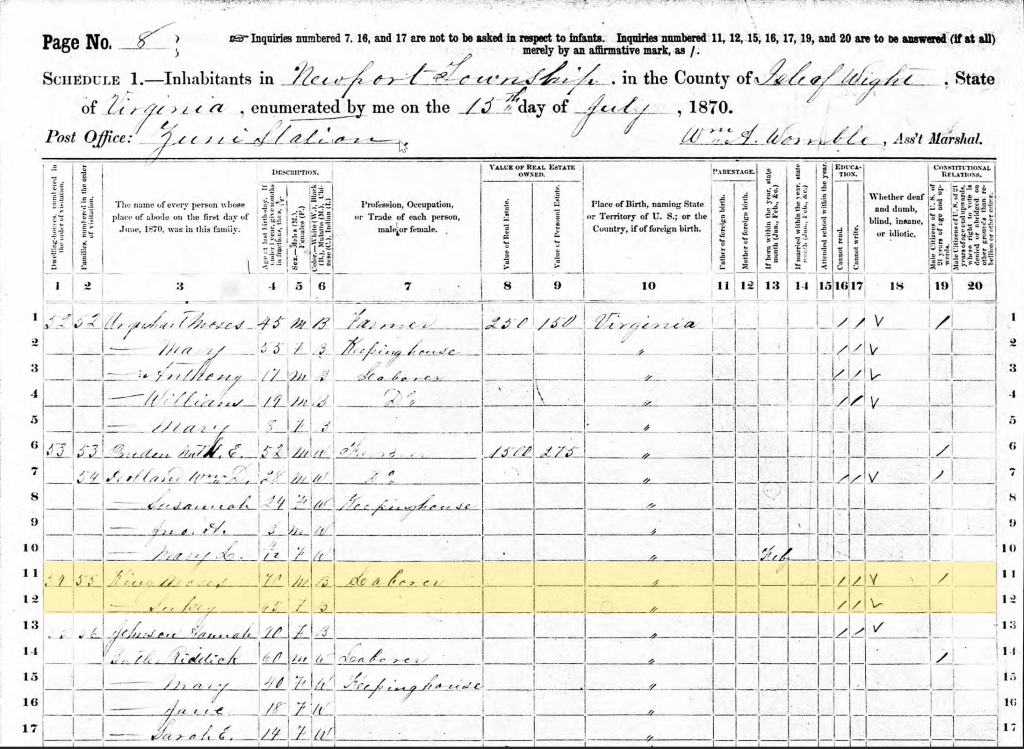 Page No. 8
☞ Inquiries numbered 7, 16, and 17 are not to be asked in respect to infants. Inquiries numbered 11, 12, 15, 16, 17, 19, and 20 are to be answered (if at all)
merely by an affirmative mark, as /.
SCHEDULE 1.—Inhabitants in Newport Township, in the County of Isle of Wight, State
of Virginia, enumerated by me on the 15th day of July, 1870.
Post Office: Zuni Station. Wm A. Womble, Ass't Marshal.
DESCRIPTION. VALUE OF REAL ESTATE OWNED. PARENTAGE. EDUCATION. CONSTITUTIONAL RELATIONS.
Dwelling-houses, numbered in the order of visitation. Families, numbered in the order of visitation. The name of every person whose place of abode on the first day of June, 1870, was in this family. Age at last birth-day. If under 1 year, give months in fractions, thus, Sex.—Males (M.), Females (F.) Color.—White (W.), Black (B.), Mulatto (M.), Chinese (C.), Indian (I.) Profession, Occupation, or Trade of each person, male or female. Value of Real Estate. Value of Personal Estate. Place of Birth, naming State or Territory of U. S.; or the Country, if of foreign birth. Father of foreign birth. Mother of foreign birth. If born within the year, state month (Jan., Feb., &c.) If married within the year, state month (Jan., Feb., &c.) Attended school within the year. Cannot read. Cannot write. Whether deaf and dumb, blind, insane, or idiotic. Male Citizens of U. S. of 21 years of age and upwards. Male Citizens of U. S. of 21 years of age and upwards, where right to vote is denied or abridged on other grounds than rebellion or other crime.
1 2 3 4 5 6 7 8 9 10 11 12 13 14 15 16 17 18 19 20
1 52 52 Urquhart Moses 45 M B Farmer 250 150 Virginia / / V / 1
2 — Mary 55 F B Keeping house " / / V 2
3 — Anthony 17 M B Laborer " / / V 3
4 — William 19 M B Do " / / V 4
5 — Mary 8 F B " 5
6 53 53 E. 52 M W Farmer 1500 275 " / 6
7 54 Holland Wm D. 28 M W Do " / / V / 7
8 — Susannah 24 F W Keeping house " 8
9 — Jno. 3 M W " 9
10 — Mary L. F W " Feb 10
11 54 55 King Moses 70 M B Laborer " / / V / 11
12 — Sukey 65 F B " / / V 12
13 56 Johnson Hannah 90 F B " / / V 13
14 Butler Riddick 60 M W Laborer " / 14
15 — Mary 40 F W Keeping house " 15
16 — Jane 18 F W " 16
17 — Sarah E. 14 F W " 17